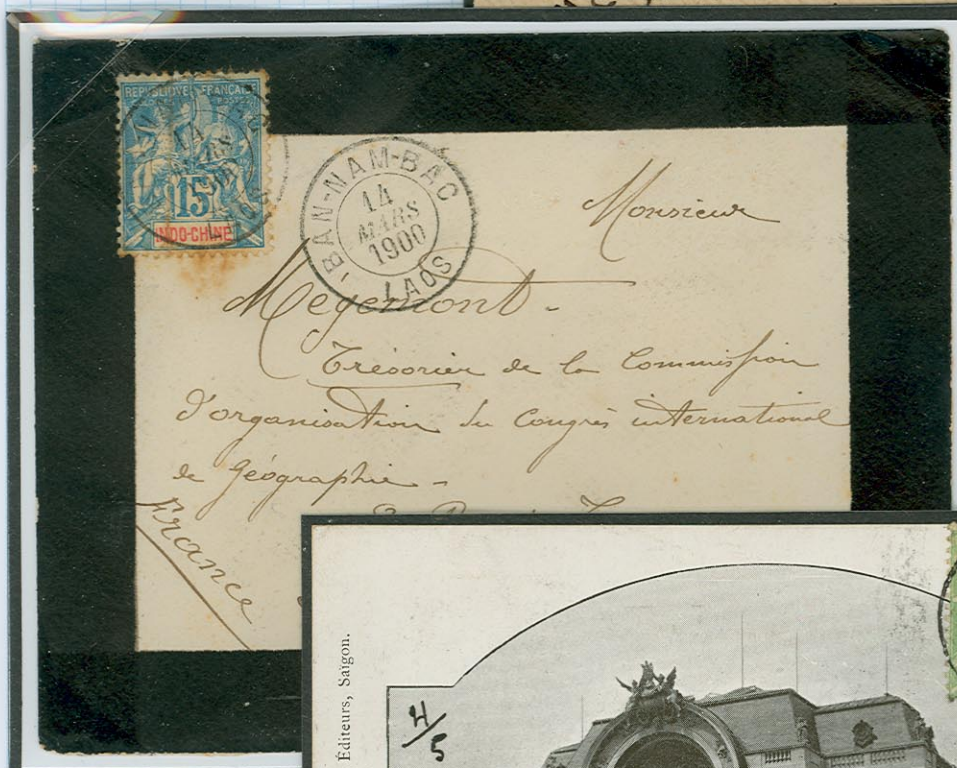 REPUBLIQUE FRANCAISE
15
INDO-CHINE
BAN-NAM-BAC
14
MARS
1900
LAOS
Monsieur
Megemont -
Trésorier de la Commission
d'organisation du Congrès international
de Géographie -
France
Éditeurs, Saïgon.
4/5